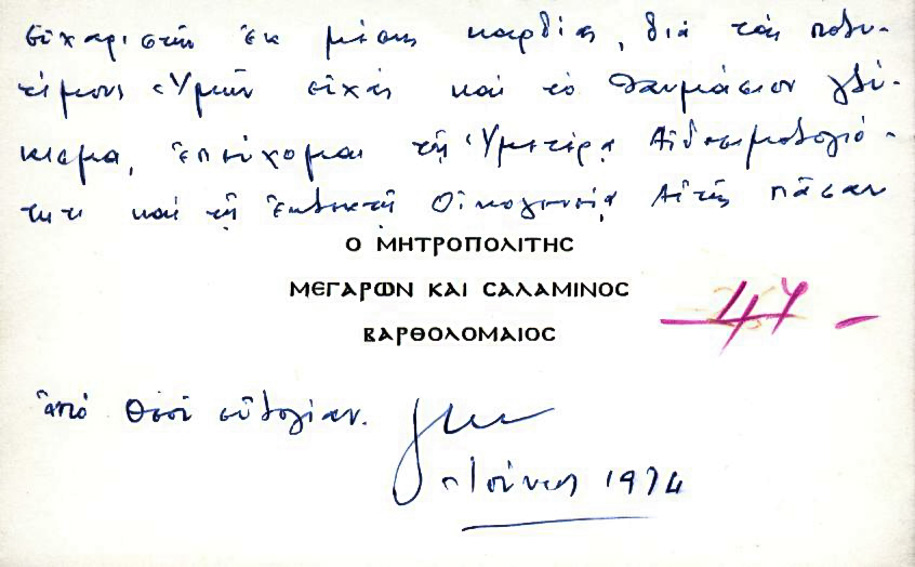 Εὐχαριστῶν ἐκ μέσης καρδίας, διὰ τὰς πολυ-
τίμους Ὑμῶν εὐχὰς καὶ τὸ θαυμάσιον γλύ-
κισμα, ἐπεύχομαι τῇ Ὑμετέρᾳ Αἰδεσιμολογιό-
τητι καὶ τῇ ἐκλεκτῇ Οἰκογενείᾳ Αὐτῆς πᾶσαν
Ο ΜΗΤΡΟΠΟΛΙΤΗΣ
ΜΕΓΑΡΩΝ ΚΑΙ ΣΑΛΑΜΙΝΟΣ
ΒΑΡΘΟΛΟΜΑΙΟΣ
ἀπὸ Θεοῦ εὐλογίαν.
Ἰούνιος 1974